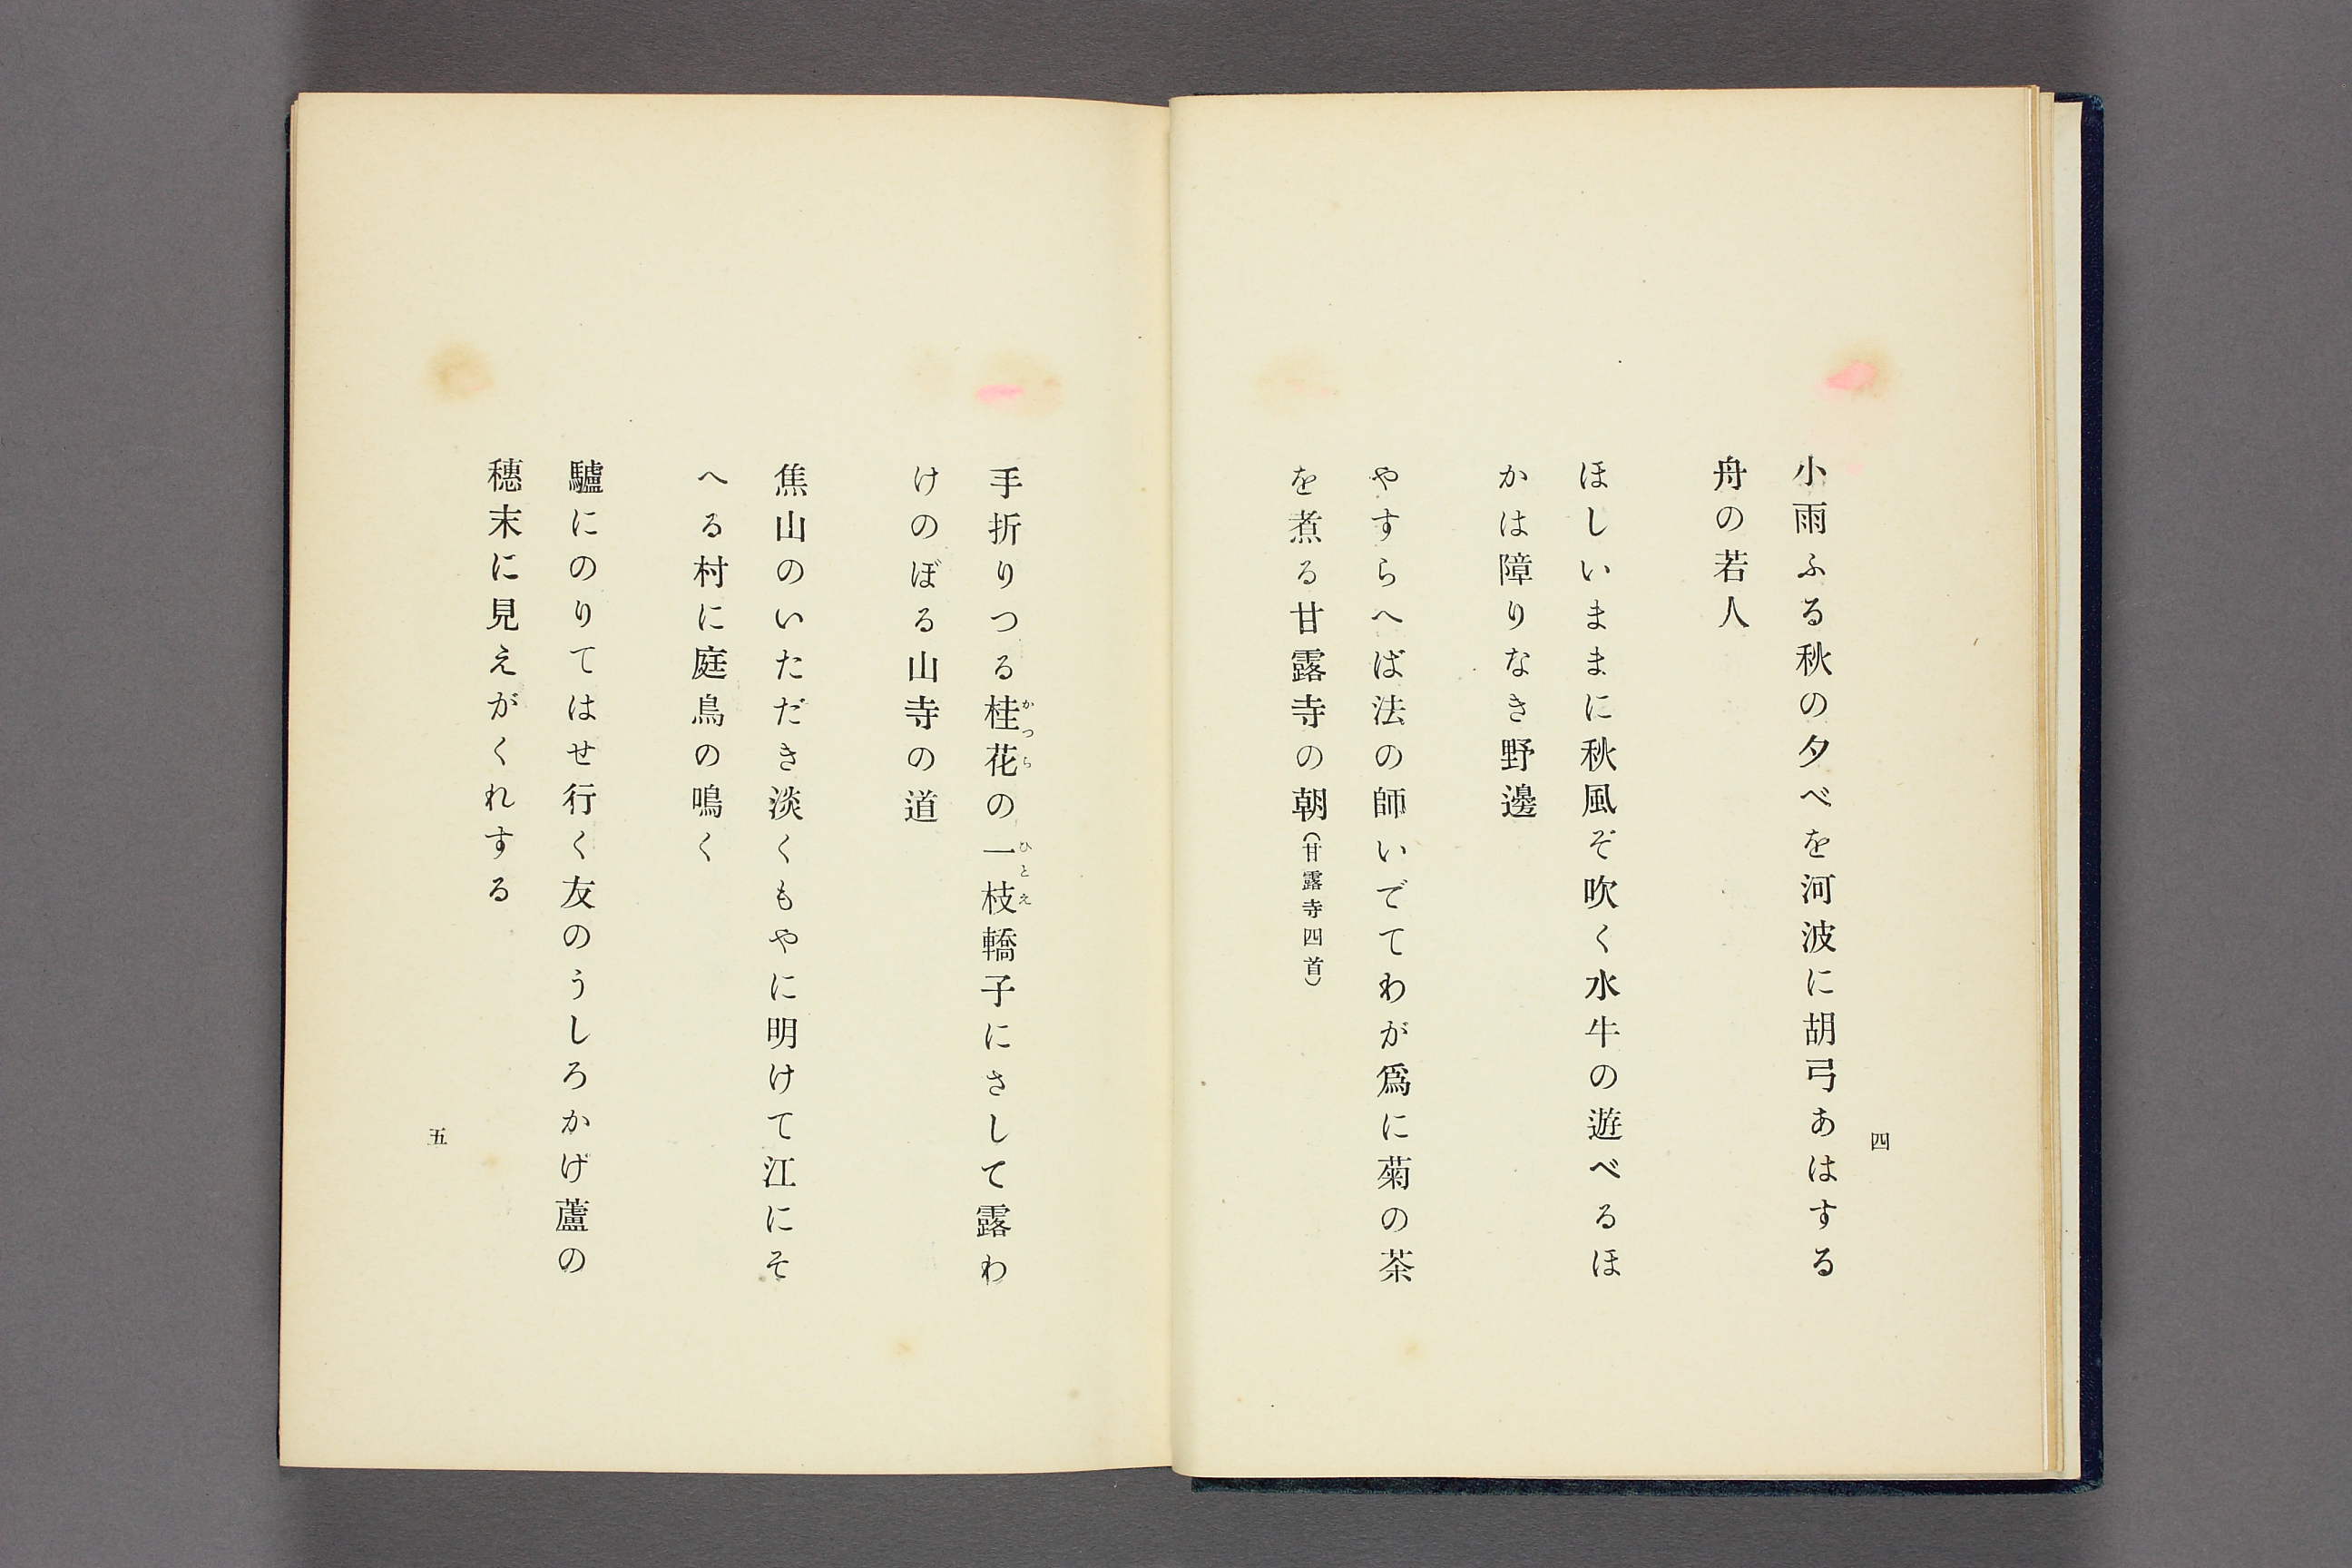 四
小雨ふる秋の夕べを河波に胡弓あはする
舟の若人
ほしいままに秋風ぞ吹く水牛の遊べるほ
かは障りなき野邊
やすらへば法の師いでてわが爲に菊の茶
を煮る甘露寺の朝(甘露寺四首)
手折りつる桂花の一枝轎子にさして露わ
かつら
ひとえ
けのぼる山寺の道
焦山のいただき淡くもやに明けて江にそ
へる村に庭鳥の鳴く
驢にのりてはせ行く友のうしろかげ蘆の
穗末に見えがくれする
五